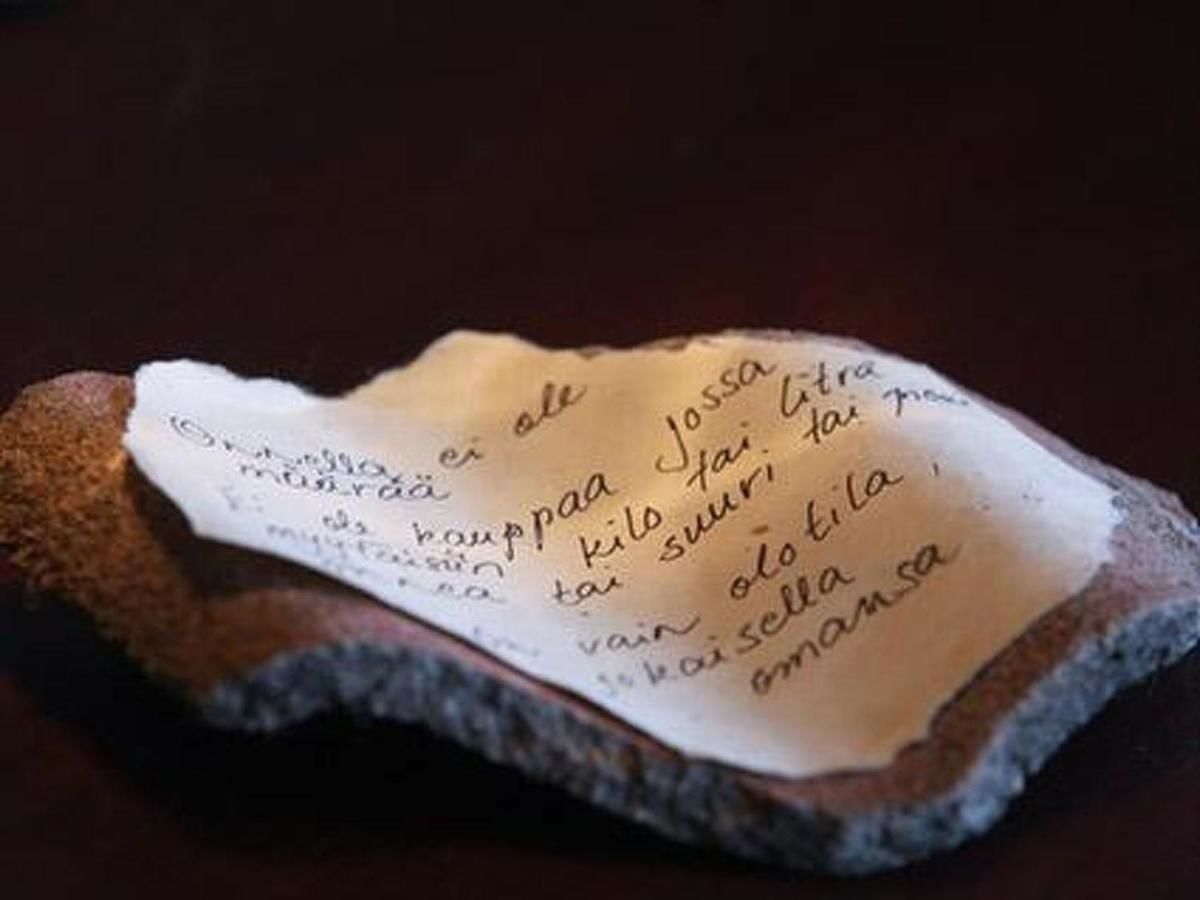 Onnella ei ole
määrää
ole kauppaa Jossa
myytäisiin kilo tai litra
tai suuri tai
vain olotila,
jokaisella
omansa